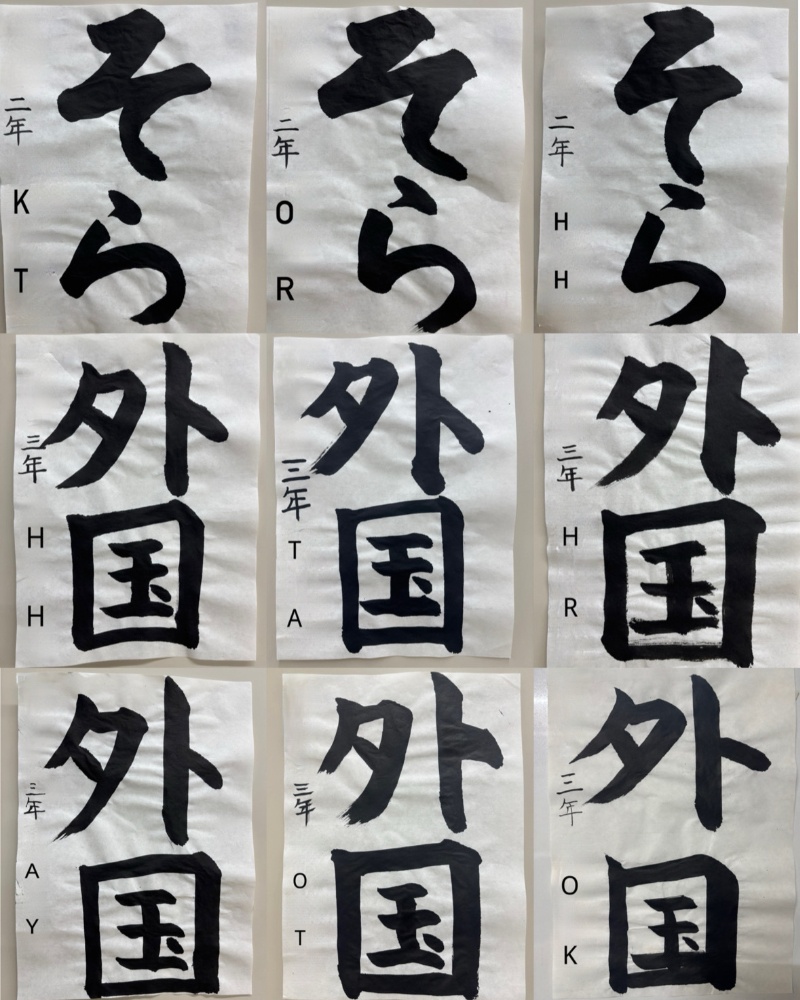 そら
二年 K T
そら
二年 O R
そら
二年 H H
外国
三年 H H
外国
三年 T A
外国
三年 H R
外国
三年 A Y
外国
三年 O T
外国
三年 O K